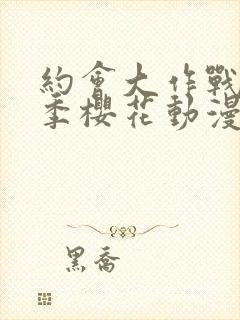 約會大作戰
季櫻花動漫
黑喬